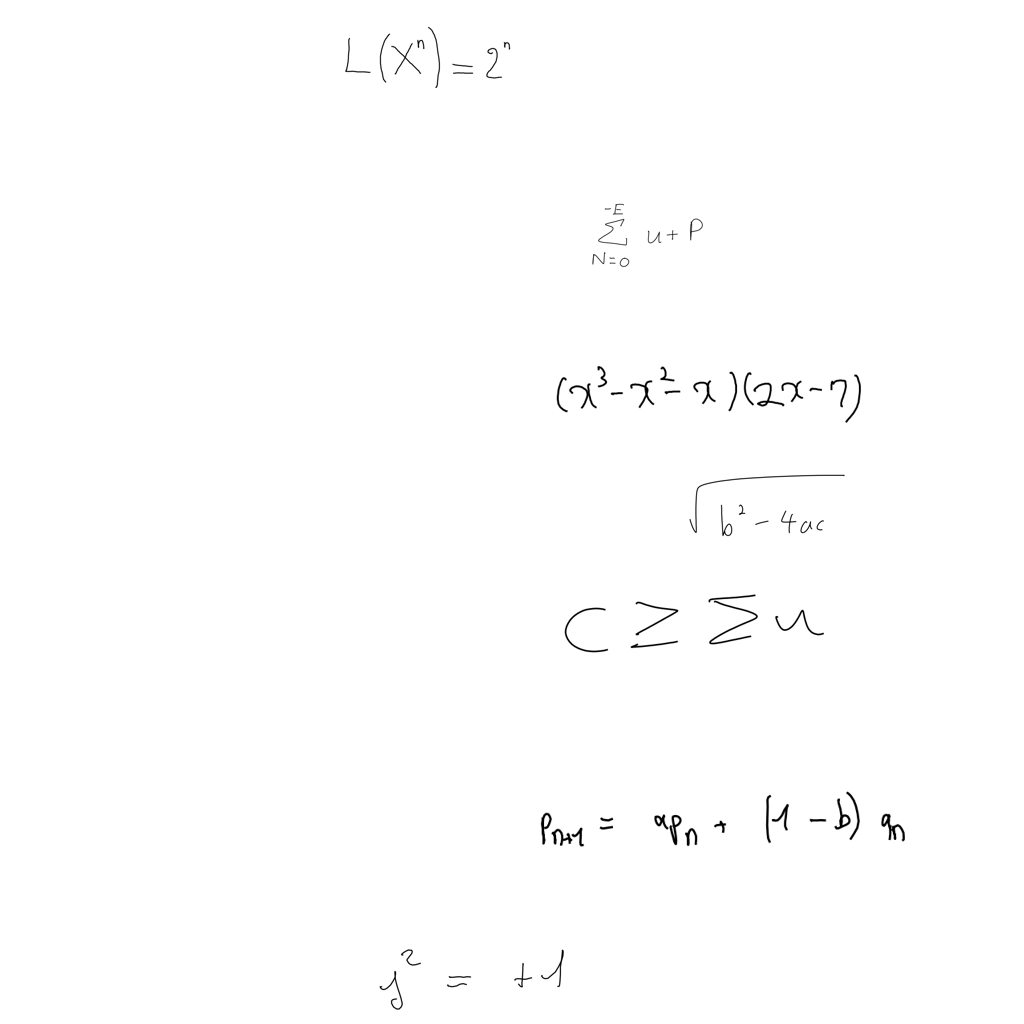 L(X^n) = 2^n
\sum_{N=0}^{-E} u + P
(x^3 - x^2 - x)(2x - 7)
\sqrt{b^2 - 4ac}
C \geq \sum u
p_{n+1} = ap_n + (1 - b) q_n
y^2 = +1